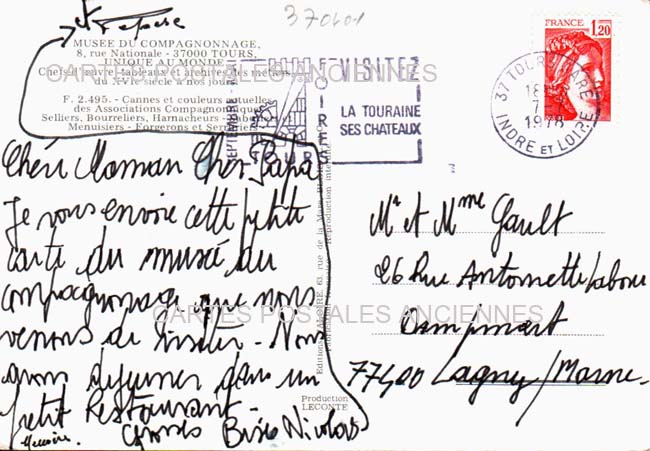 370601
et
MUSÉE DU COMPAGNONNAGE,
8, rue Nationale - 37000 TOURS,
UNIQUE AU MONDE
Chefs-d'œuvre, tableaux et archives des métiers
du XVIe siècle à nos jours
F. 2.495. - Cannes et couleurs actuelles
des Associations Compagnonniques
Selliers, Bourreliers, Harnacheurs - Sabotiers et
Menuisiers - Forgerons et Serruriers
CARTES POSTALES ANCIENNES
SEPTEMBRE
FOIRES
TOURS
VISITEZ
LA TOURAINE
SES CHATEAUX
37 TOURS GARE
18
7
1978
INDRE ET LOIRE
FRANCE
1,20
Chéri Maman Cher Papa
Je vous envoie cette petite
carte du musé du
compagnonnage que nous
venons de visiter - Nous
avons déjeuner dans un
petit Restaurant
Grosses Bises Nicolas
Mr et Mme Gault
26 Rue Antoinette
Dampmart
77400 Lagny/Marne
CARTES POSTALES ANCIENNES
Production
LECONTE